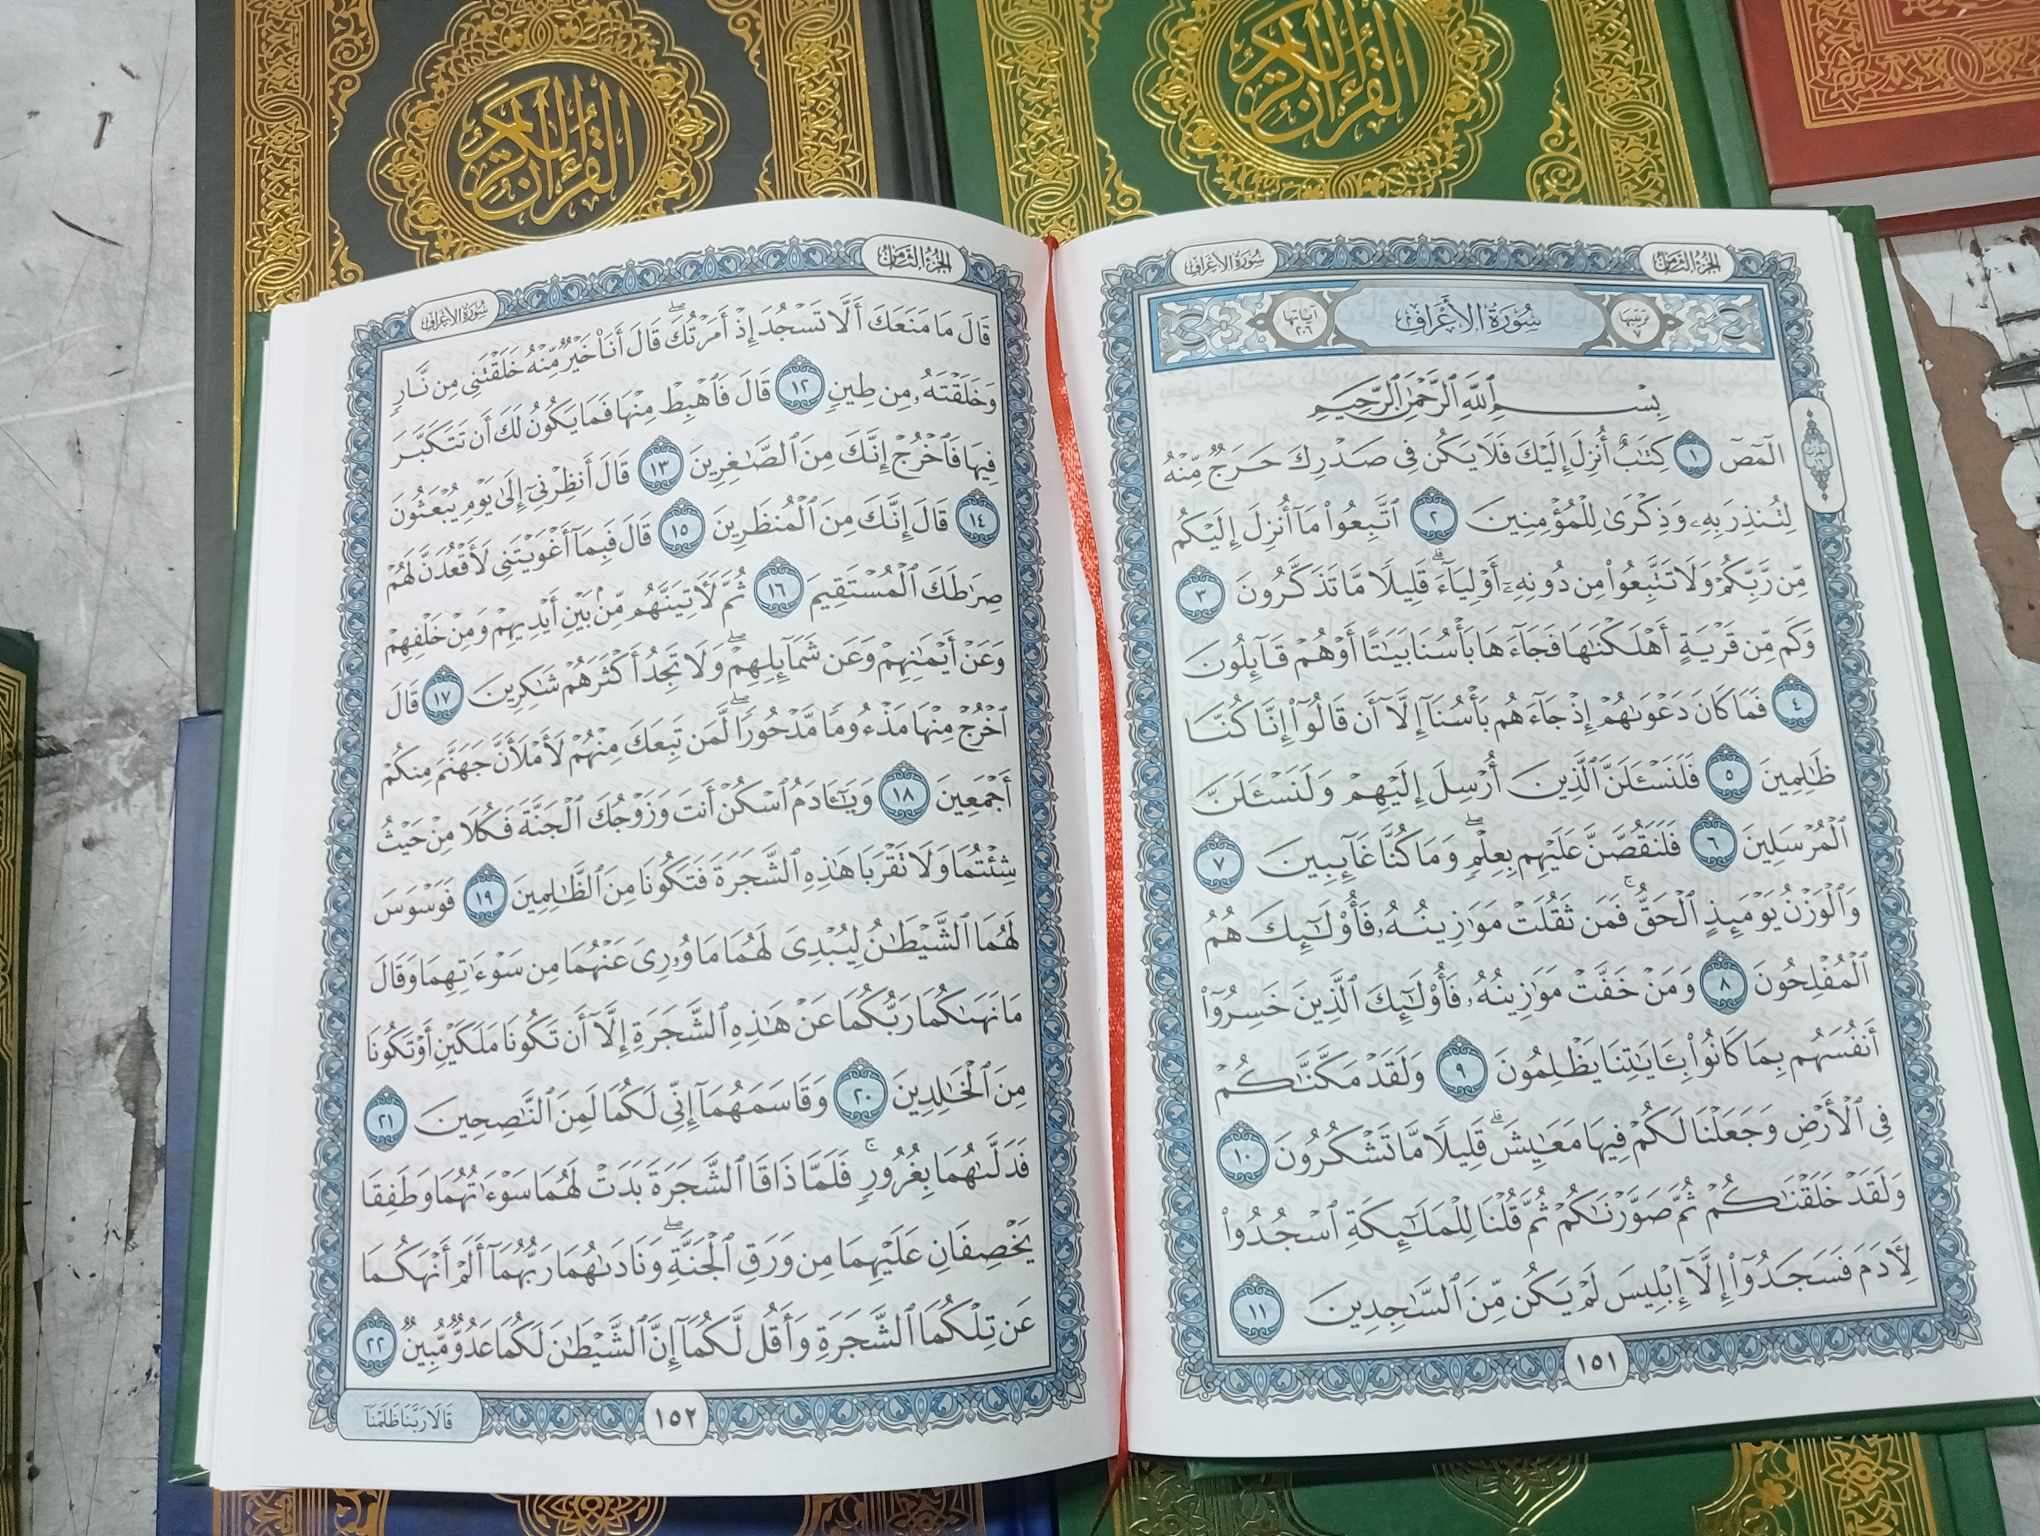 القرءان الكريم
القرءان الكريم
الجزء الثامن
سورة الأعراف
ترتيبها ٧
سُورَةُ الأَعْرَافِ
آياتها ٢٠٦
بِسْمِ ٱللَّهِ ٱلرَّحْمَٰنِ ٱلرَّحِيمِ
الٓمٓصٓ ١ كِتَٰبٌ أُنزِلَ إِلَيْكَ فَلَا يَكُن فِى صَدْرِكَ حَرَجٌ مِّنْهُ
لِتُنذِرَ بِهِۦ وَذِكْرَىٰ لِلْمُؤْمِنِينَ ٢ ٱتَّبِعُوا۟ مَآ أُنزِلَ إِلَيْكُم
مِّن رَّبِّكُمْ وَلَا تَتَّبِعُوا۟ مِن دُونِهِۦٓ أَوْلِيَآءَ ۗ قَلِيلًا مَّا تَذَكَّرُونَ ٣
وَكَم مِّن قَرْيَةٍ أَهْلَكْنَٰهَا فَجَآءَهَا بَأْسُنَا بَيَٰتًا أَوْ هُمْ قَآئِلُونَ
٤ فَمَا كَانَ دَعْوَىٰهُمْ إِذْ جَآءَهُم بَأْسُنَآ إِلَّآ أَن قَالُوٓا۟ إِنَّا كُنَّا
ظَٰلِمِينَ ٥ فَلَنَسْـَٔلَنَّ ٱلَّذِينَ أُرْسِلَ إِلَيْهِمْ وَلَنَسْـَٔلَنَّ
ٱلْمُرْسَلِينَ ٦ فَلَنَقُصَّنَّ عَلَيْهِم بِعِلْمٍ ۖ وَمَا كُنَّا غَآئِبِينَ ٧
وَٱلْوَزْنُ يَوْمَئِذٍ ٱلْحَقُّ ۚ فَمَن ثَقُلَتْ مَوَٰزِينُهُۥ فَأُو۟لَٰٓئِكَ هُمُ
ٱلْمُفْلِحُونَ ٨ وَمَنْ خَفَّتْ مَوَٰزِينُهُۥ فَأُو۟لَٰٓئِكَ ٱلَّذِينَ خَسِرُوٓا۟
أَنفُسَهُم بِمَا كَانُوا۟ بِـَٔايَٰتِنَا يَظْلِمُونَ ٩ وَلَقَدْ مَكَّنَّٰكُمْ
فِى ٱلْأَرْضِ وَجَعَلْنَا لَكُمْ فِيهَا مَعَٰيِشَ ۗ قَلِيلًا مَّا تَشْكُرُونَ ١٠
وَلَقَدْ خَلَقْنَٰكُمْ ثُمَّ صَوَّرْنَٰكُمْ ثُمَّ قُلْنَا لِلْمَلَٰٓئِكَةِ ٱسْجُدُوا۟
لِـَٔادَمَ فَسَجَدُوٓا۟ إِلَّآ إِبْلِيسَ لَمْ يَكُن مِّنَ ٱلسَّٰجِدِينَ ١١
١٥١
الجزء الثامن
سورة الأعراف
قَالَ مَا مَنَعَكَ أَلَّا تَسْجُدَ إِذْ أَمَرْتُكَ ۖ قَالَ أَنَا۠ خَيْرٌ مِّنْهُ خَلَقْتَنِى مِن نَّارٍ
وَخَلَقْتَهُۥ مِن طِينٍ ١٢ قَالَ فَٱهْبِطْ مِنْهَا فَمَا يَكُونُ لَكَ أَن تَتَكَبَّرَ
فِيهَا فَٱخْرُجْ إِنَّكَ مِنَ ٱلصَّٰغِرِينَ ١٣ قَالَ أَنظِرْنِىٓ إِلَىٰ يَوْمِ يُبْعَثُونَ
١٤ قَالَ إِنَّكَ مِنَ ٱلْمُنظَرِينَ ١٥ قَالَ فَبِمَآ أَغْوَيْتَنِى لَأَقْعُدَنَّ لَهُمْ
صِرَٰطَكَ ٱلْمُسْتَقِيمَ ١٦ ثُمَّ لَـَٔاتِيَنَّهُم مِّنۢ بَيْنِ أَيْدِيهِمْ وَمِنْ خَلْفِهِمْ
وَعَنْ أَيْمَٰنِهِمْ وَعَن شَمَآئِلِهِمْ ۖ وَلَا تَجِدُ أَكْثَرَهُمْ شَٰكِرِينَ ١٧ قَالَ
ٱخْرُجْ مِنْهَا مَذْءُومًا مَّدْحُورًا ۖ لَّمَن تَبِعَكَ مِنْهُمْ لَأَمْلَأَنَّ جَهَنَّمَ مِنكُمْ
أَجْمَعِينَ ١٨ وَيَٰٓـَٔادَمُ ٱسْكُنْ أَنتَ وَزَوْجُكَ ٱلْجَنَّةَ فَكُلَا مِنْ حَيْثُ
شِئْتُمَا وَلَا تَقْرَبَا هَٰذِهِ ٱلشَّجَرَةَ فَتَكُونَا مِنَ ٱلظَّٰلِمِينَ ١٩ فَوَسْوَسَ
لَهُمَا ٱلشَّيْطَٰنُ لِيُبْدِىَ لَهُمَا مَا وُۥرِىَ عَنْهُمَا مِن سَوْءَٰتِهِمَا وَقَالَ
مَا نَهَىٰكُمَا رَبُّكُمَا عَنْ هَٰذِهِ ٱلشَّجَرَةِ إِلَّآ أَن تَكُونَا مَلَكَيْنِ أَوْ تَكُونَا
مِنَ ٱلْخَٰلِدِينَ ٢٠ وَقَاسَمَهُمَآ إِنِّى لَكُمَا لَمِنَ ٱلنَّٰصِحِينَ ٢١
فَدَلَّىٰهُمَا بِغُرُورٍ ۚ فَلَمَّا ذَاقَا ٱلشَّجَرَةَ بَدَتْ لَهُمَا سَوْءَٰتُهُمَا وَطَفِقَا
يَخْصِفَانِ عَلَيْهِمَا مِن وَرَقِ ٱلْجَنَّةِ ۖ وَنَادَىٰهُمَا رَبُّهُمَآ أَلَمْ أَنْهَكُمَا
عَن تِلْكُمَا ٱلشَّجَرَةِ وَأَقُل لَّكُمَآ إِنَّ ٱلشَّيْطَٰنَ لَكُمَا عَدُوٌّ مُّبِينٌ ٢٢
١٥٢
قَالَا رَبَّنَا ظَلَمْنَآ